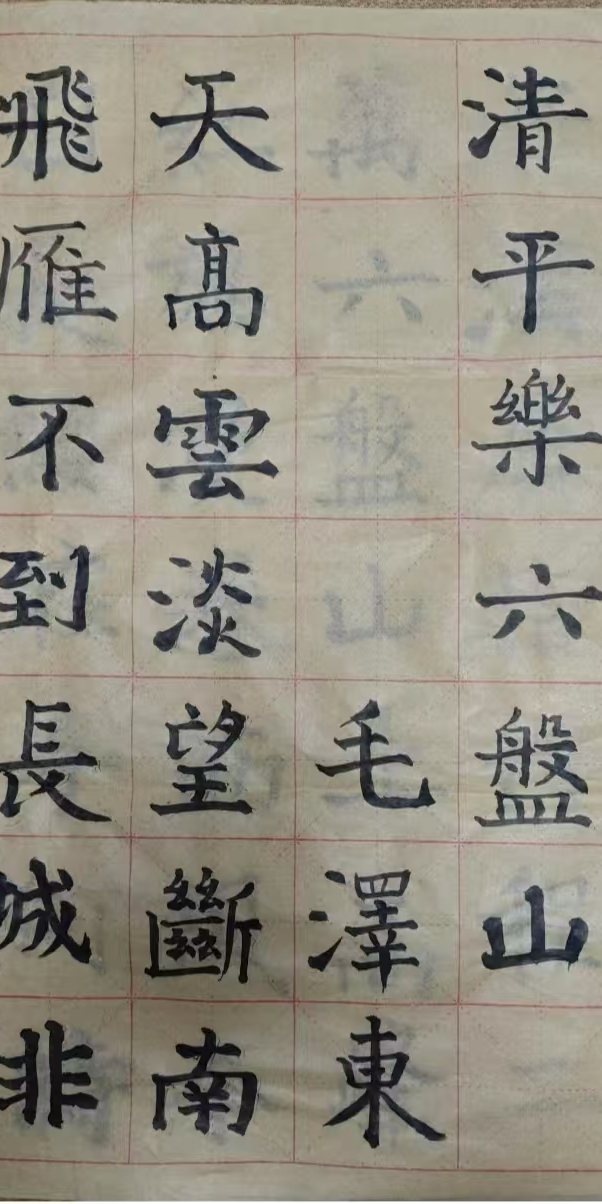 清平樂六盤山
毛澤東
天高雲淡望斷南
飛雁不到長城非